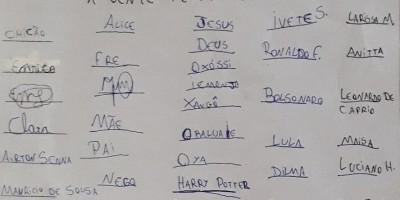 ALICE
FRE
MÃE
PAI
NEGO
Clara
AIRTON SENNA
MAURICIO DE SOUSA
JESUS
DEUS
OXÓSSI
IEMANJÁ
XANGÔ
OBALUAIE
OYA
HARRY POTTER
IVETE S.
RONALDO F.
BOLSONARO
LULA
DILMA
LARISSA M.
ANITTA
LEONARDO DE CAPRIO
MAISA
LUCIANO H.